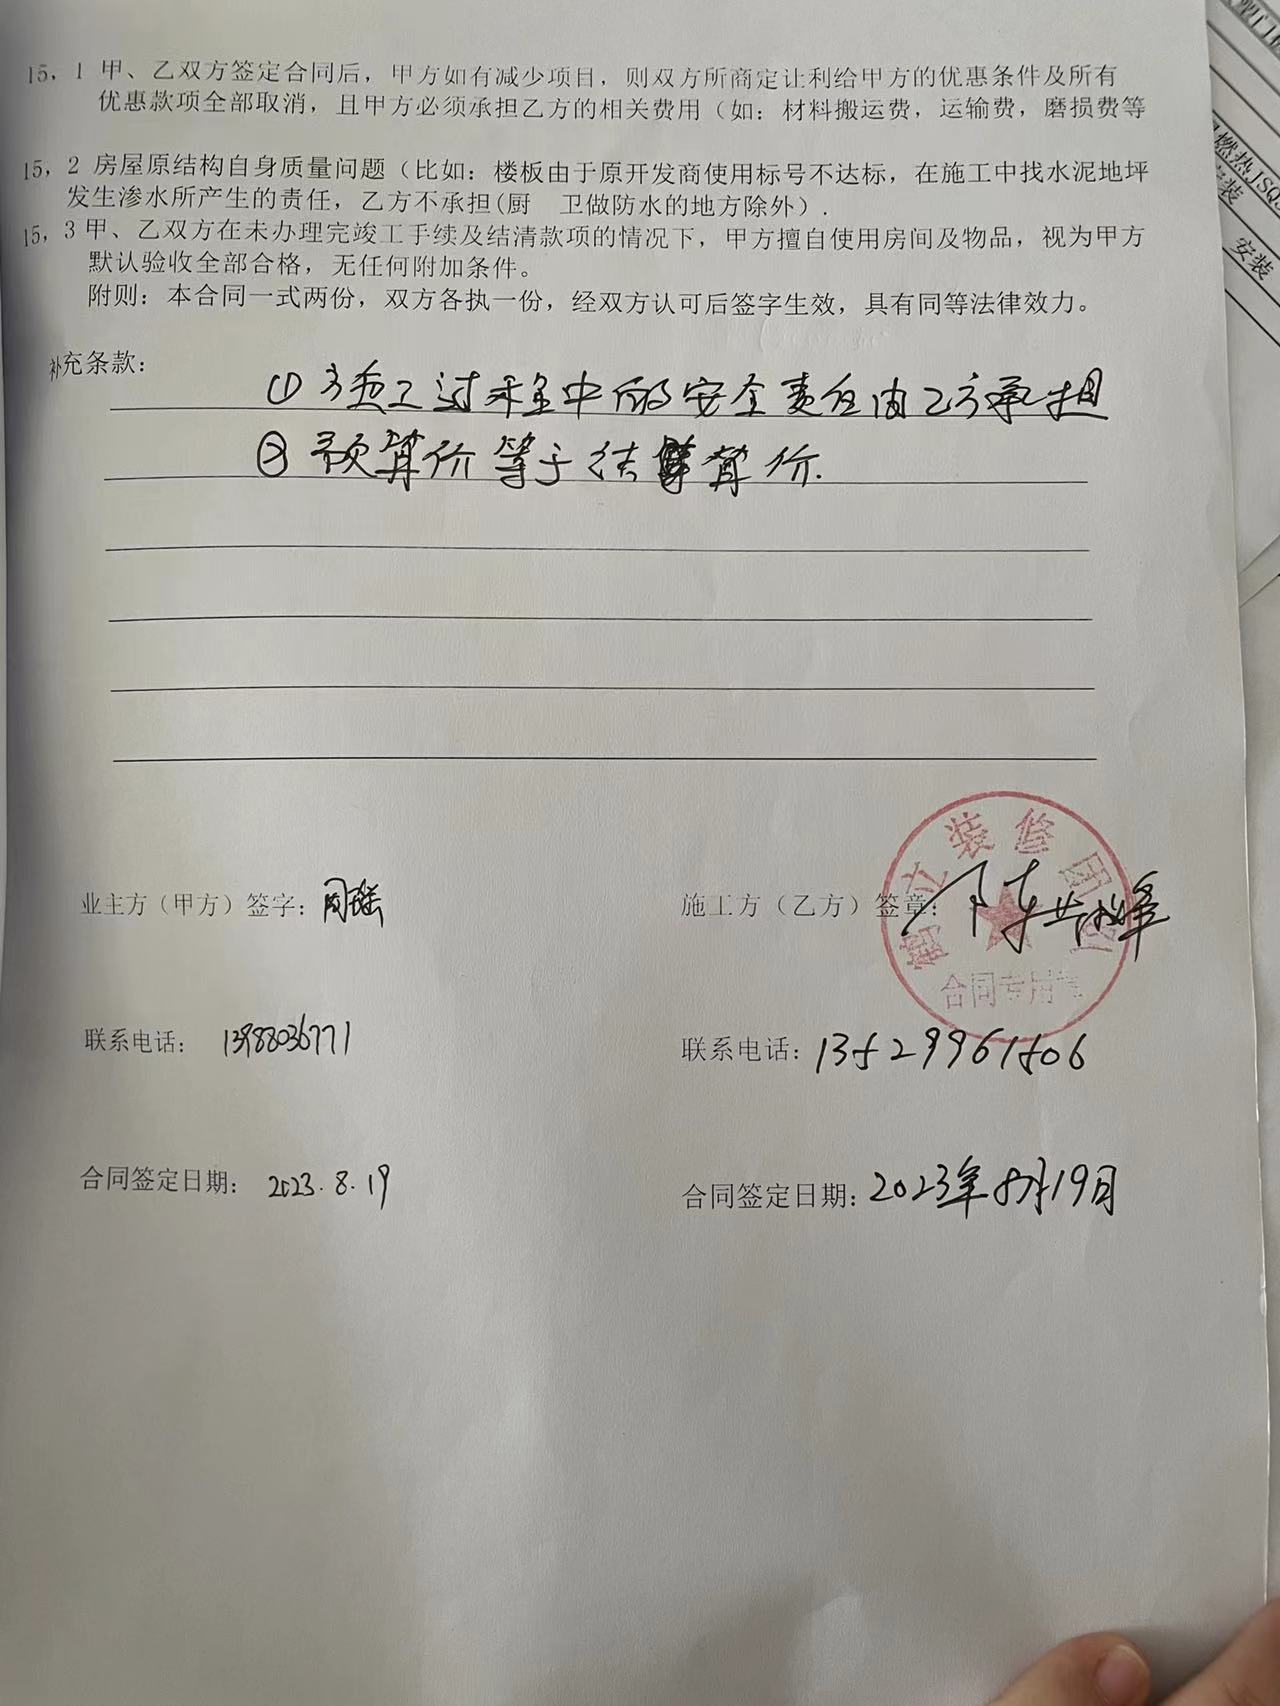 15，1 甲、乙双方签定合同后，甲方如有减少项目，则双方所商定让利给甲方的优惠条件及所有
优惠款项全部取消，且甲方必须承担乙方的相关费用（如：材料搬运费，运输费，磨损费等
15，2 房屋原结构自身质量问题（比如：楼板由于原开发商使用标号不达标，在施工中找水泥地坪
发生渗水所产生的责任，乙方不承担(厨 卫做防水的地方除外）.
15，3 甲、乙双方在未办理完竣工手续及结清款项的情况下，甲方擅自使用房间及物品，视为甲方
默认验收全部合格，无任何附加条件。
附则：本合同一式两份，双方各执一份，经双方认可后签字生效，具有同等法律效力。
补充条款：
① 施工过程中的安全责任由乙方承担
② 预算价等于结算价.
业主方（甲方）签字：周瑶
施工方（乙方）签章：
装修
合同专用章
联系电话： 13988036771
联系电话：13529961506
合同签定日期： 2023.8.19
合同签定日期：2023年8月19日
燃热JSQ
安装
安装